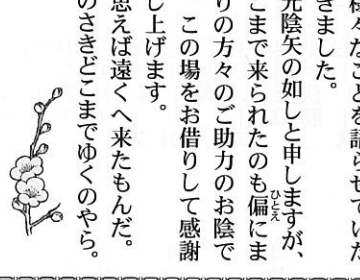 様々なことを語らせていた
きました。
光陰矢の如しと申しますが、
こまで来られたのも偏にま
ひとえ
りの方々のご助力のお陰で
この場をお借りして感謝
し上げます。
思えば遠くへ来たもんだ。
のさきどこまでゆくのやら。